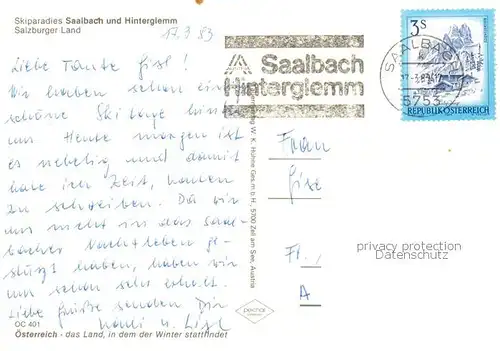 Skiparadies Saalbach und Hinterglemm
Salzburger Land
17.3.83
Liebe Tante Gisl!
Wir haben schon ein
schöne Ski tage hinter
uns Heute morgen ist
es nebelig und damit
habe ich Zeit,
zu schreiben. Da wir
uns nicht in das Saal-
bacher Nachtleben ge-
stürzt haben, haben wir
uns schon sehr erholt.
Liebe Grüße senden Dir
u. Lisl
OC 401
Österreich - das Land, in dem der Winter stattfindet
Saalbach
Hinterglemm
SAALBACH
5753
3 S
REPUBLIK ÖSTERREICH
W. K. Hühne Ges.m.b.H., 5700 Zell am See, Austria
Frau
A
privacy protection
Datenschutz